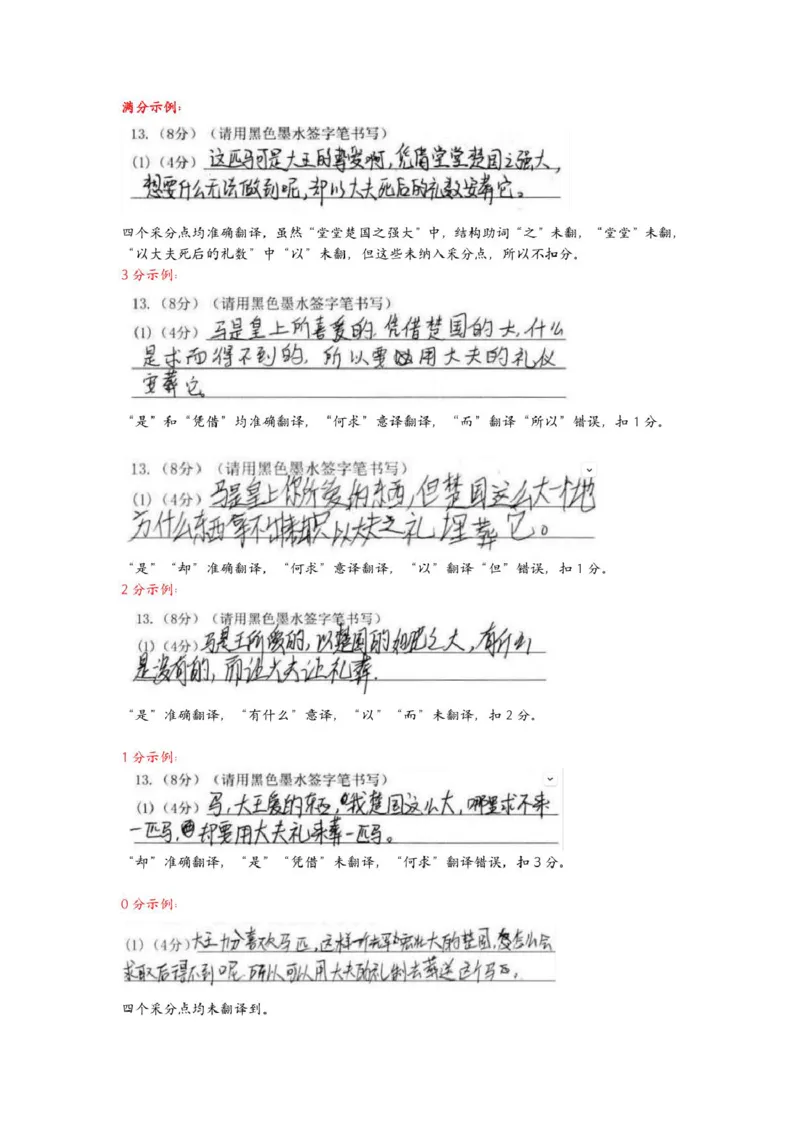 满分示例：
13.（8分）（请用黑色墨水签字笔书写）
（1）（4分） 这匹马可是大王的喜爱啊，凭借堂堂楚国之强大，
想要什么无法做到呢，却以大夫死后的礼数安葬它。
四个采分点均准确翻译，虽然“堂堂楚国之强大”中，结构助词“之”未翻，“堂堂”未翻，
“以大夫死后的礼数”中“以”未翻，但这些未纳入采分点，所以不扣分。
3分示例：
13.（8分）（请用黑色墨水签字笔书写）
（1）（4分） 马是皇上所喜爱的，凭借楚国的大，什么
是求而得不到的，所以要用大夫的礼仪
安葬它。
“是”和“凭借”均准确翻译，“何求”意译翻译，“而”翻译“所以”错误，扣1分。
13.（8分）（请用黑色墨水签字笔书写）
（1）（4分） 马是皇上你所爱的东西，但楚国这么大一地
为什么东西拿不到 却以大夫之礼埋葬它。
“是”“却”准确翻译，“何求”意译翻译，“以”翻译“但”错误，扣1分。
2分示例：
13.（8分）（请用黑色墨水签字笔书写）
（1）（4分）马是王所爱的，以楚国的 之大，有什么
是没有的，而让大夫让礼葬.
“是”准确翻译，“有什么”意译，“以”“而”未翻译，扣2分。
1分示例：
13.（8分）（请用黑色墨水签字笔书写）
（1）（4分） 马，大王爱的东西，我楚国这么大，哪里求不来
一匹马，却要用大夫礼来葬一匹马。
“却”准确翻译，“是”“凭借”未翻译，“何求”翻译错误，扣3分。
0分示例：
（1）（4分）大王十分喜欢马匹，这样一 宏大的楚国，怎么会
求取后得不到呢，所以可以用大夫的礼制去葬送这个马匹。
四个采分点均未翻译到。